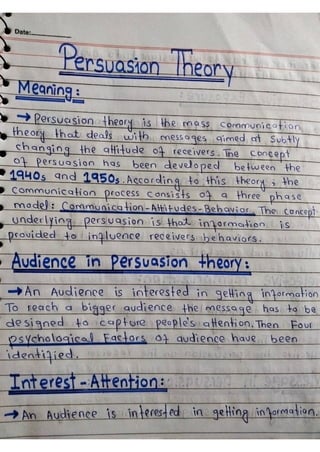 Date:
Persuasion Theory
Meaning:
→ Persuasion theory is the mass communication
theory that deals with messages aimed at subtly
changing the attitude of receivers. The concept
of persuasion has been developed between the
1940s and 1950s. According to this theory, the
communication process consists of a three phase
model: Communication-Attitudes-Behavior. The concept
underlying persuasion is that information is
provided to influence receivers behaviors.
Audience in persuasion theory:
→ An Audience is interested in getting information
To reach a bigger audience the message has to be
designed to capture people's attention. Then Four
psychological Factors of audience have been
identified.
Interest-Attention:
→ An Audience is interested in getting information.